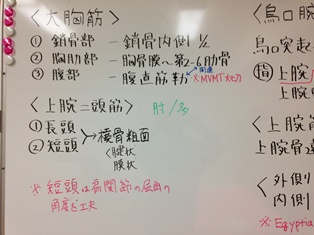 〈大胸筋〉
① 鎖骨部 ー 鎖骨内側 1/2
② 胸肋部 ー 胸骨膜〜第2-6肋骨
③ 腹部 ー 腹直筋鞘
※MVMT
〈上腕二頭筋〉 肘/
① 長頭
② 短頭
→橈骨粗面
腱状
膜状
※ 短頭は肩関節の屈曲の
角度を工夫
〈烏口腕
烏口突起
指 上腕
上腕
〈上腕
上腕骨
〈外側
内側
※ Egyptia